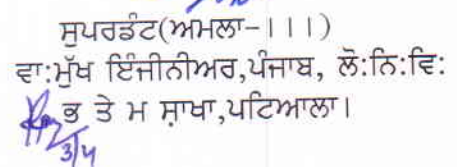 ਸੁਪਰਡੰਟ(ਅਮਲਾ-।।।)
ਵਾ:ਮੁੱਖ ਇੰਜੀਨੀਅਰ,ਪੰਜਾਬ, ਲੋ:ਨਿ:ਵਿ:
ਭ ਤੇ ਮ ਸ਼ਾਖਾ,ਪਟਿਆਲਾ।
3/4